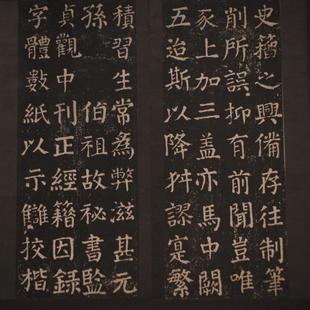 史籀之興備存往制筆
削所誤抑有前聞豈唯
豕上加三盖亦馬中闕
五迨斯以降舛謬寔繁
積習生常爲弊滋甚元
孫 伯祖故秘書監
貞觀中刊正經籍因録
字體數紙以示讎挍楷